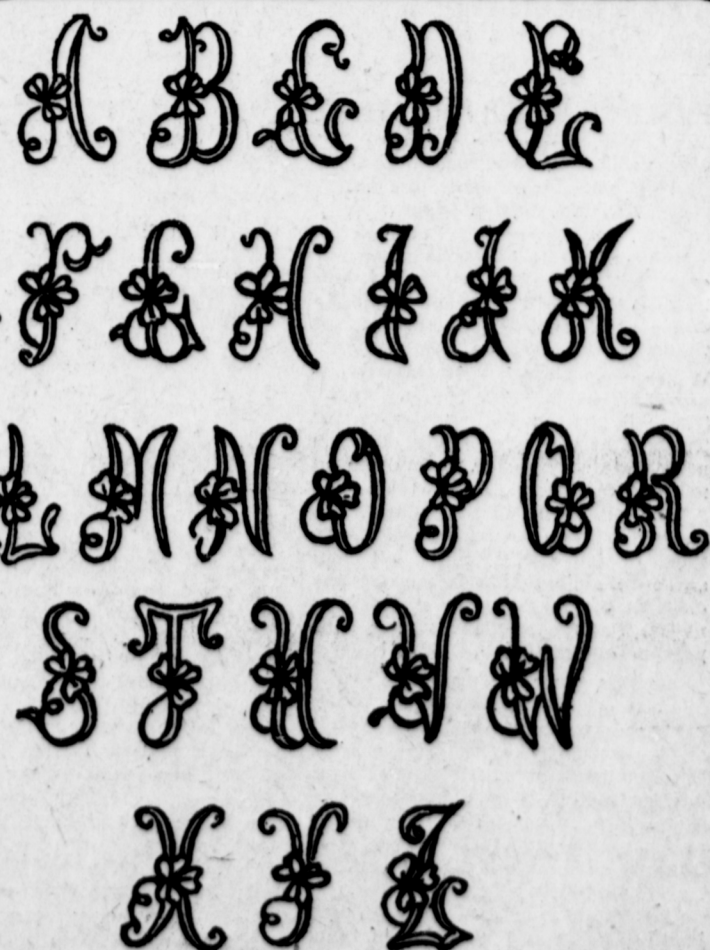 A B C D E
F G H I J K
L M N O P Q R
S T U V W
X Y Z